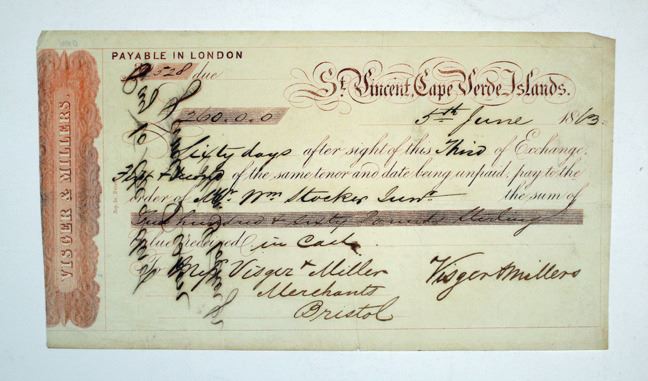 PAYABLE IN LONDON
528 due
St. Vincent, Cape Verde Islands.
260.0.0
5th June 1863
Sixty days after sight of this Third of Exchange
First & Second of the same tenor and date being unpaid, pay to the
order of Mr. Wm Stocker Junr the sum of
Two hundred & sixty Pounds Sterling
Value received in Cash
To Visger & Miller
Visger & Millers
Merchants
Bristol
VISGER & MILLERS.